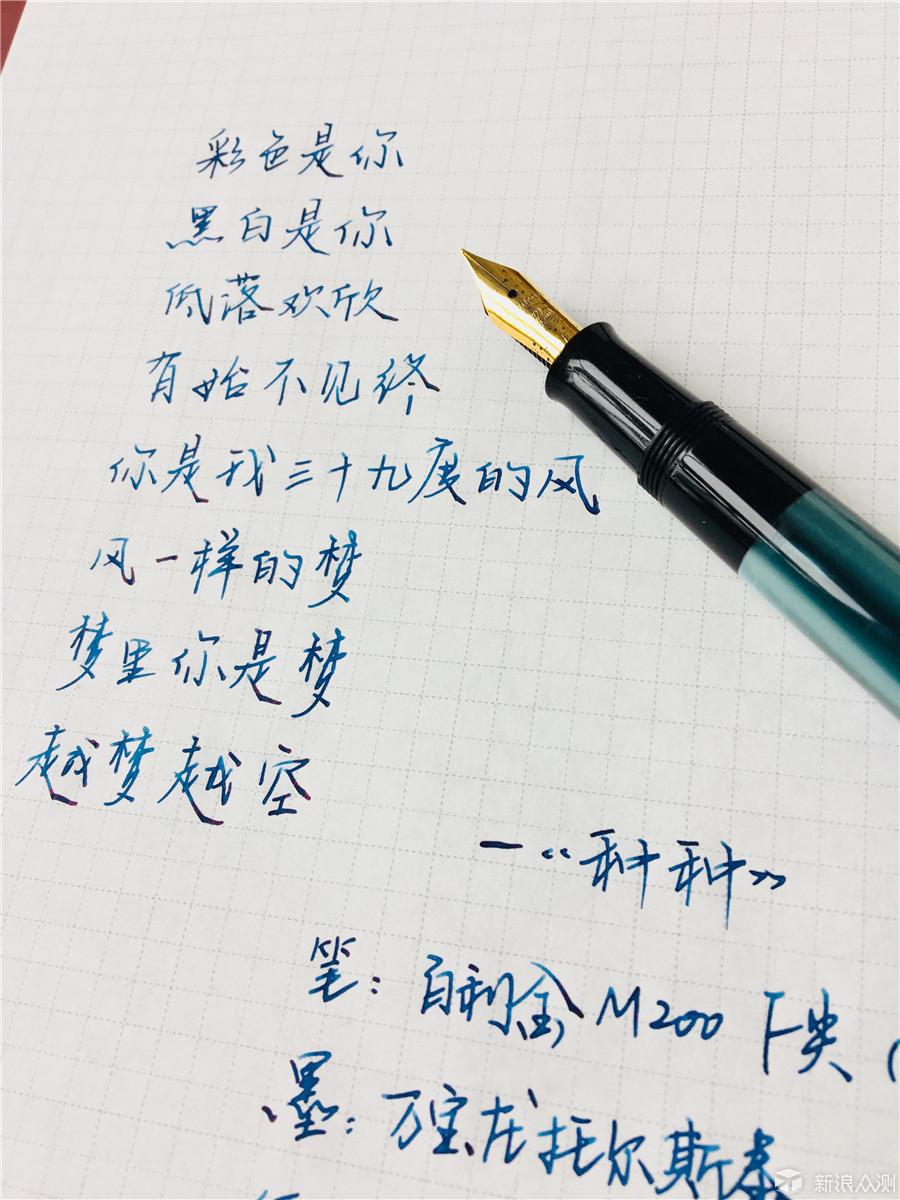 彩色是你
黑白是你
低落欢欣
有始不见终
你是我三十九度的风
风一样的梦
梦里你是梦
越梦越空
—《种种》
笔：百利金M200 F尖（
墨：万宝龙托尔斯泰
新浪众测